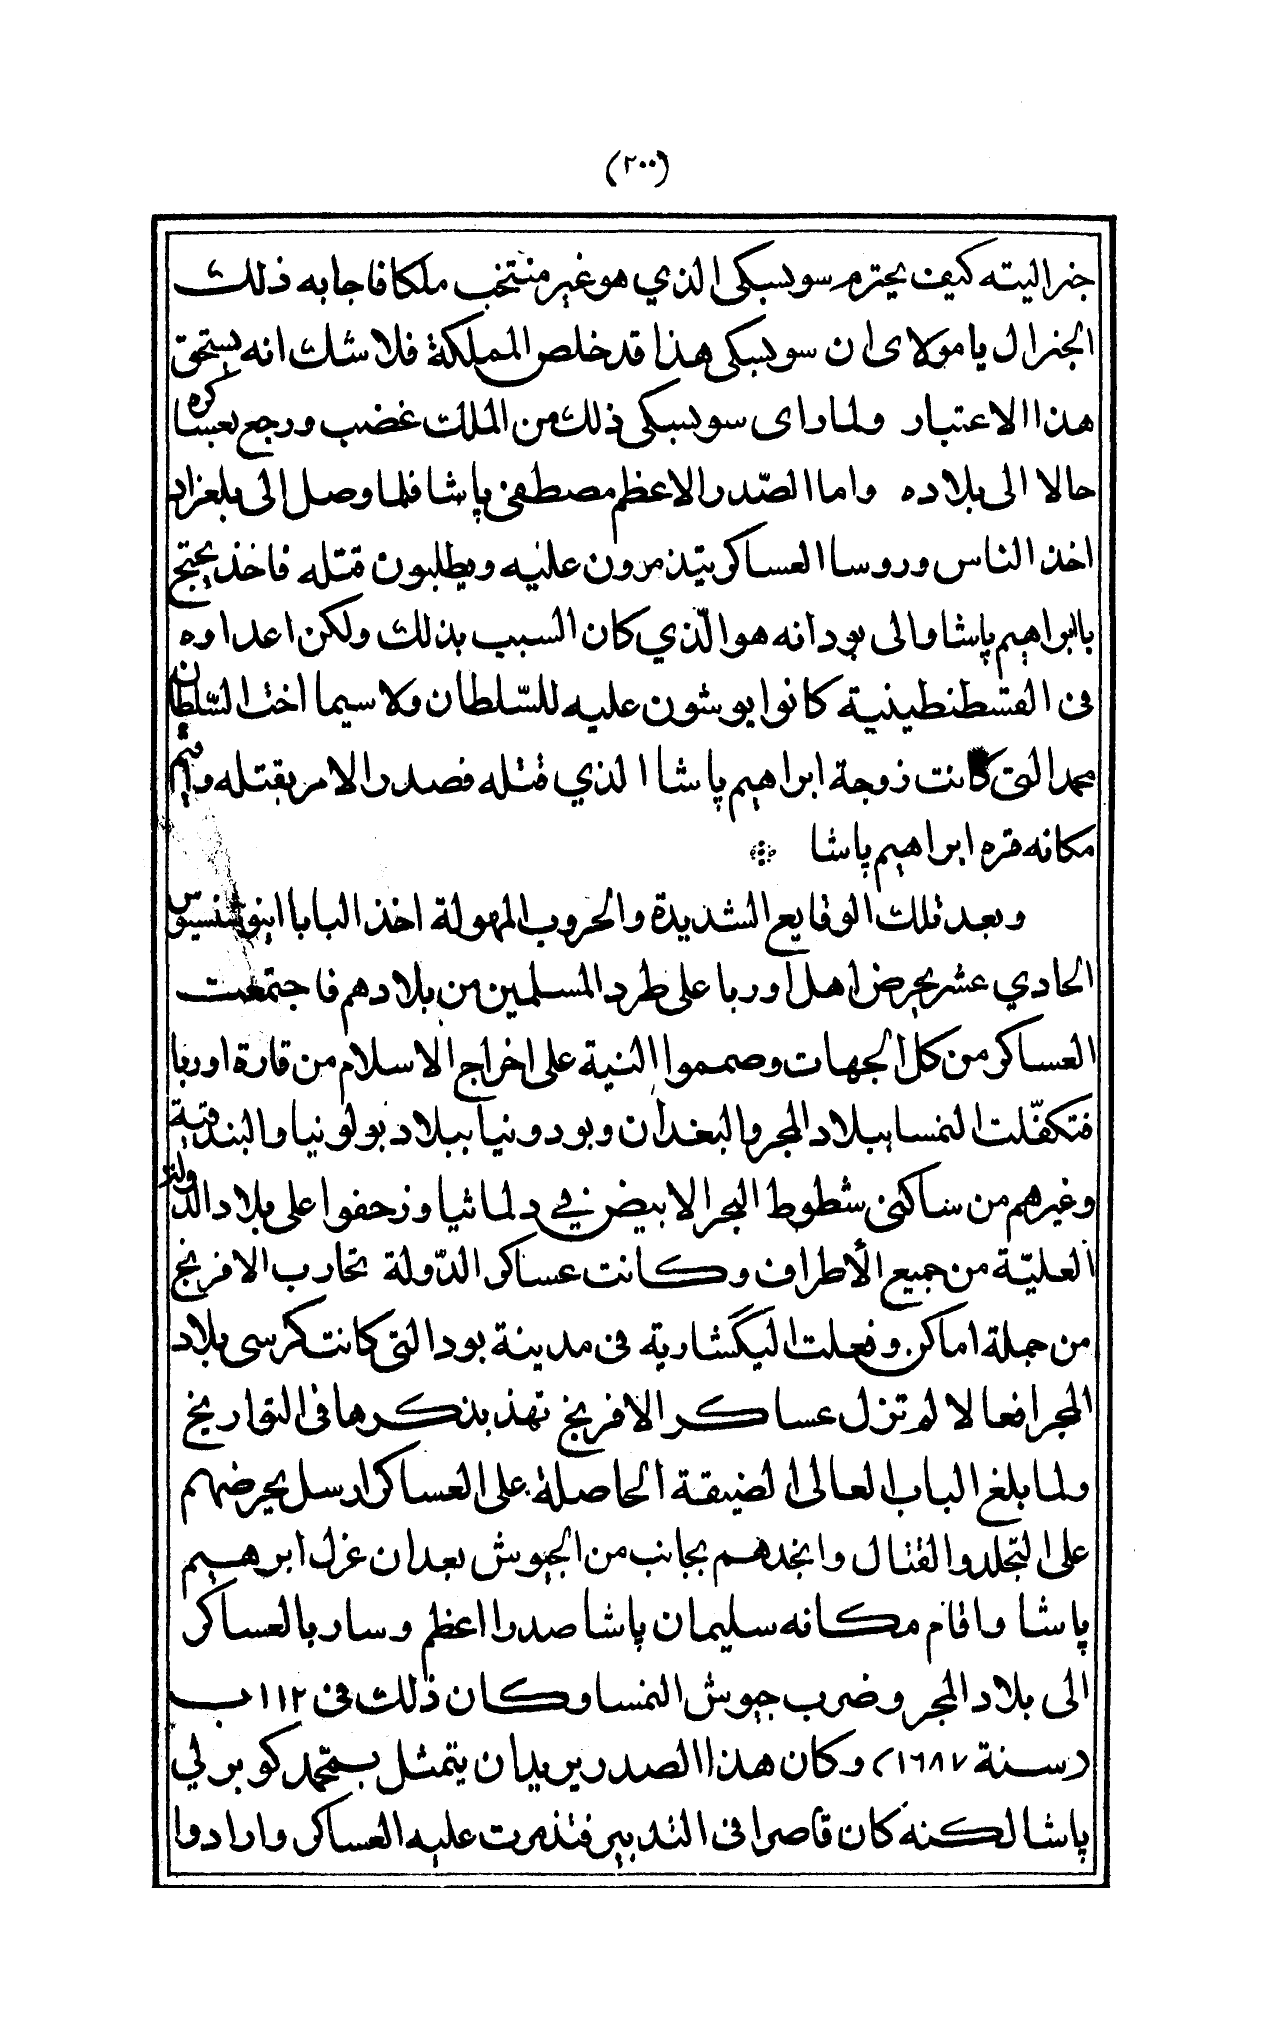 (٢٠٠)
جنراليته كيف يحترم سوبسبكى الذي هو غير منتخب ملكا فاجابه ذلك
الجنرال يا مولاى ان سوبسبكى هذا قد خلص المملكة فلا شك انه يستحق
هذا الاعتبار ولما راى سوبسبكى ذلك من الملك غضب ورجع بعساكره
حالا الى بلاده واما الصّدر الاعظم مصطفى پاشا فلما وصل الى بلغراد
اخذ الناس وروسا العساكر يتذمرون عليه ويطلبون قتله فاخذ يحتج
بابراهيم پاشا والى بودانه هو الّذي كان السبب بذلك ولكن اعداوه
فى القسطنطينية كانوا يوشون عليه للسّلطان ولا سيما اخت السّلطان
محمد التى كانت زوجة ابراهيم پاشا الذي قتله فصدر الامر بقتله واقيم
مكانه قره ابراهيم پاشا ❊
وبعد تلك الوقايع الشديدة والحروب المهولة اخذ البابا اينوشنسيوس
الحادي عشر يحرض اهل اوربا على طرد المسلمين من بلادهم فاجتمعت
العساكر من كل الجهات وصمموا النية على اخراج الاسلام من قارة اوربا
فتكفّلت النمسا ببلاد المجر والبغدان وبودونيا ببلاد بولونيا والبندقية
وغيرهم من ساكنى شطوط البحر الابيض في دلماثيا وزحفوا على بلاد الدولة
العليّة من جميع الأطراف وكانت عساكر الدّولة تحارب الافرنج
من جملة اماكن. وفعلت اليكشارية فى مدينة بودا التى كانت كرسى بلاد
المجر افعالا لم تزل عساكر الافرنج تهذ بذكرها فى التواريخ
ولما بلغ الباب العالى الضيقة الحاصلة على العساكر ارسل يحرضهم
على التجلد والقتال وانجدهم بجانب من الجيوش بعد ان عزل ابرهيم
پاشا واقام مكانه سليمان پاشا صدرا اعظم وسار بالعساكر
الى بلاد المجر وضرب جيوش النمسا وكان ذلك فى ١١٢ ب
(سنة ١٦٨٧) وكان هذا الصدر يريد ان يتمثل بمحمّد كوبرلي
پاشا لكنه كان قاصرا فى التدبير فتذمرت عليه العساكر وارادوا